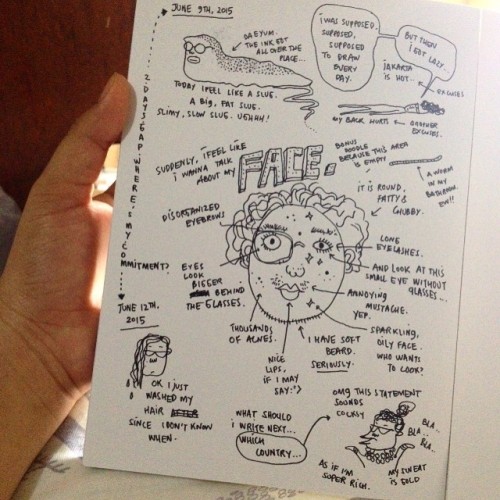 JUNE 9TH, 2015
DAEYUM.
THE INK GOT
ALL OVER THE
PLACE...
TODAY I FEEL LIKE A SLUG.
A BIG, FAT SLUG.
SLIMY, SLOW SLUG. UGHHH!
I WAS SUPPOSED,
SUPPOSED,
SUPPOSED
TO DRAW
EVERY
DAY.
BUT THEN
I GOT LAZY.
JAKARTA
IS HOT.
EXCUSES
MY BACK HURTS
ANOTHER
EXCUSES.
2 DAYS GAP. WHERE IS MY COMMITMENT?
SUDDENLY, I FEEL LIKE
I WANNA TALK
ABOUT MY
FACE.
BONUS
DOODLE
BECAUSE THIS AREA
IS EMPTY
A WORM
IN MY
BATHROOM.
EW!!
IT IS ROUND,
FATTY &
CHUBBY.
DISORGANIZED
EYEBROWS
LONG
EYELASHES.
AND LOOK AT THIS
SMALL EYE WITHOUT
GLASSES...
EYES
LOOK
BIGGER
BEHIND
THE GLASSES.
ANNOYING
MUSTACHE.
YEP.
SPARKLING,
OILY FACE.
WHO WANTS
TO LOOK?
THOUSANDS
OF ACNES.
I HAVE SOFT
BEARD.
SERIOUSLY.
NICE
LIPS,
IF I MAY
SAY :">
JUNE 12TH,
2015
OK I JUST
WASHED MY
HAIR
SINCE I DON'T KNOW
WHEN.
WHAT SHOULD
I WRITE NEXT...
WHICH
COUNTRY...
OMG THIS STATEMENT
SOUNDS
COCKY
BLA..
BLA..
BLA..
AS IF I'M
SUPER RICH.
MY SWEAT
IS GOLD